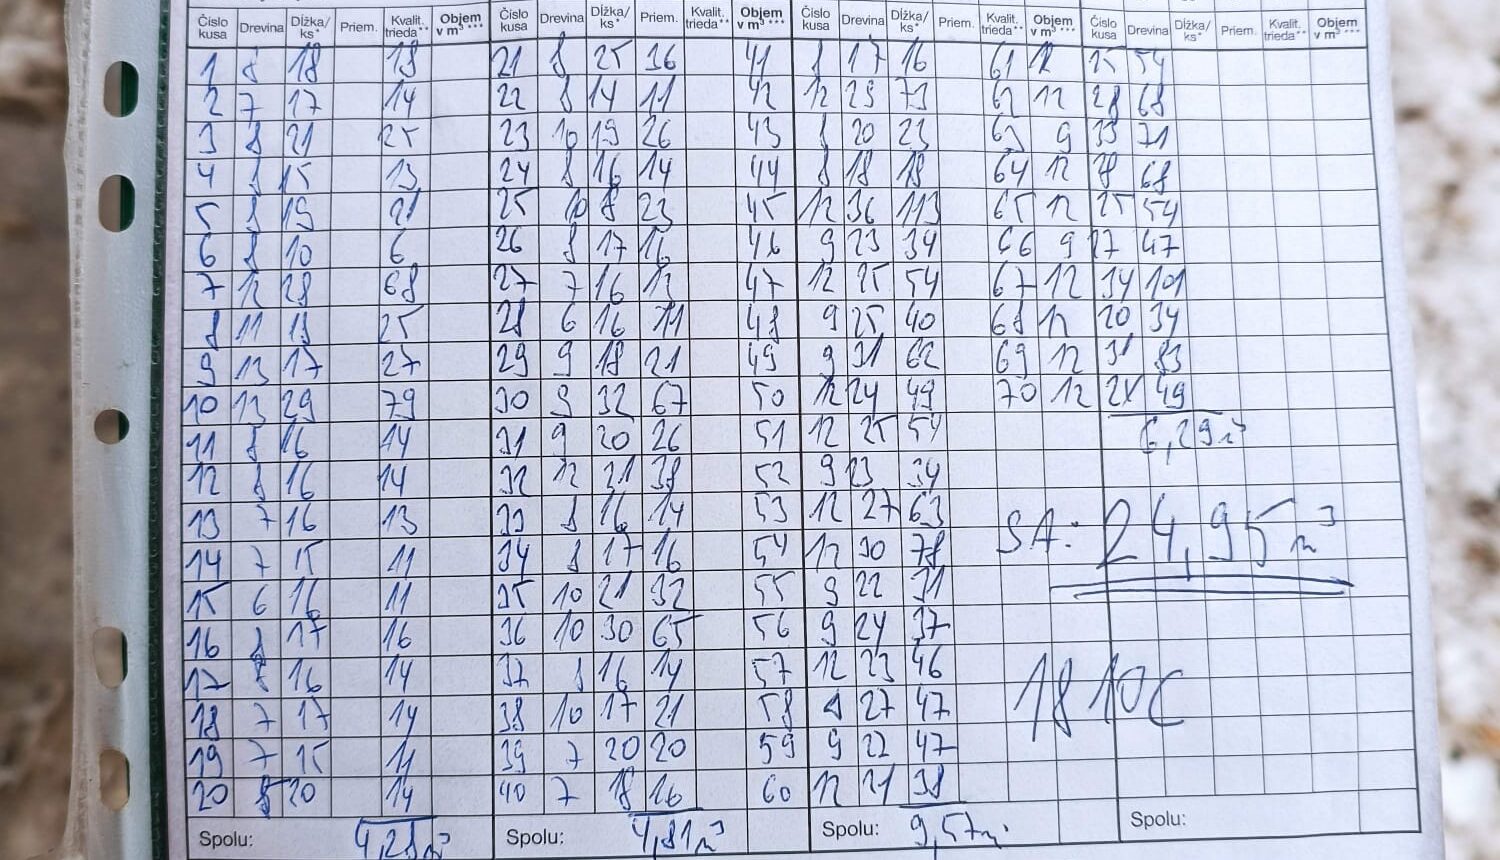 Číslo kusa Drevina Dĺžka/ks* Priem. Kvalit. trieda** Objem v m³*** Číslo kusa Drevina Dĺžka/ks* Priem. Kvalit. trieda** Objem v m³*** Číslo kusa Drevina Dĺžka/ks* Priem. Kvalit. trieda** Objem v m³*** Číslo kusa Drevina Dĺžka/ks* Priem. Kvalit. trieda** Objem v m³***
1 8 18 18 21 8 25 36 41 8 17 16 61 12 25 54
2 7 17 14 22 8 14 11 42 12 29 73 62 12 28 68
3 8 21 25 23 10 19 26 43 8 20 23 63 9 33 71
4 8 15 13 24 8 16 14 44 8 18 18 64 12 28 68
5 8 19 21 25 10 18 23 45 12 36 113 65 12 25 54
6 8 10 6 26 8 17 16 46 9 23 34 66 9 27 47
7 12 28 68 27 7 16 12 47 12 25 54 67 12 34 101
8 11 18 25 28 6 16 11 48 9 25 40 68 12 20 34
9 13 17 27 29 9 18 21 49 9 31 62 69 12 31 83
10 13 29 79 30 9 32 67 50 12 24 49 70 12 24 49
11 8 16 14 31 9 20 26 51 12 25 54 6,29 m³
12 8 16 14 32 12 21 38 52 9 23 34
13 7 16 13 33 8 16 14 53 12 27 63 SA: 24,95 m³
14 7 15 11 34 8 17 16 54 12 30 78
15 6 16 11 35 10 21 32 55 9 22 31
16 8 17 16 36 10 30 65 56 9 24 37
17 8 16 14 37 8 16 14 57 12 23 46 18 10C
18 7 17 14 38 10 17 21 58 9 27 47
19 7 15 11 39 7 20 20 59 9 27 47
20 8 20 14 40 7 18 16 60 12 21 38
Spolu: 4,28 m³ Spolu: 4,81 m³ Spolu: 9,57 m³ Spolu: